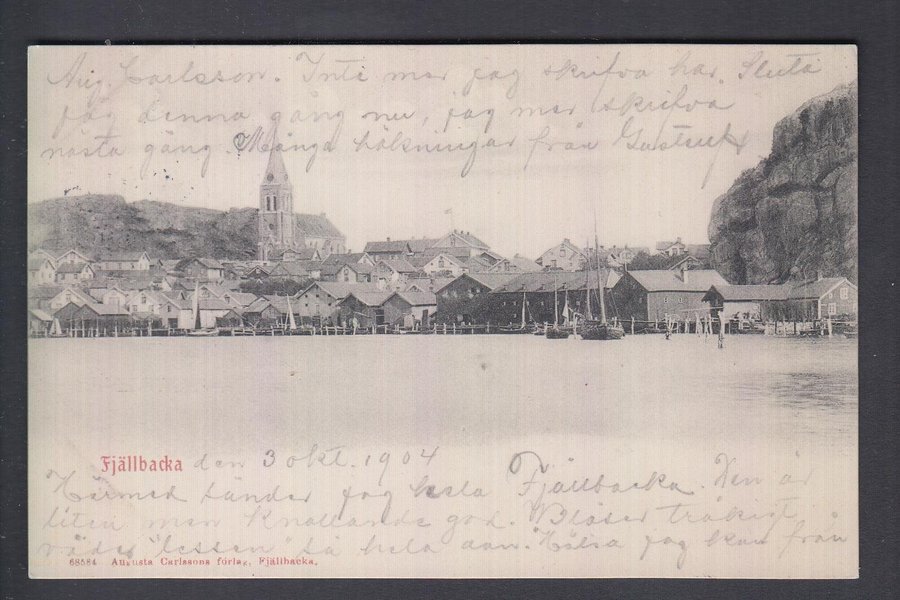 Aug. Carlsson. Inte mer jag skrifva har. Sluta
jag denna gång nu, jag mer skrifva
nästa gång. Många hälsningar från Gustaf
Fjällbacka den 3 okt. 1904
Härmed sänder jag hela Fjällbacka. Den är
liten men Knallande god. Blåser
så hela dan. jag kan från
68584 Augusta Carlssons förlag, Fjällbacka.